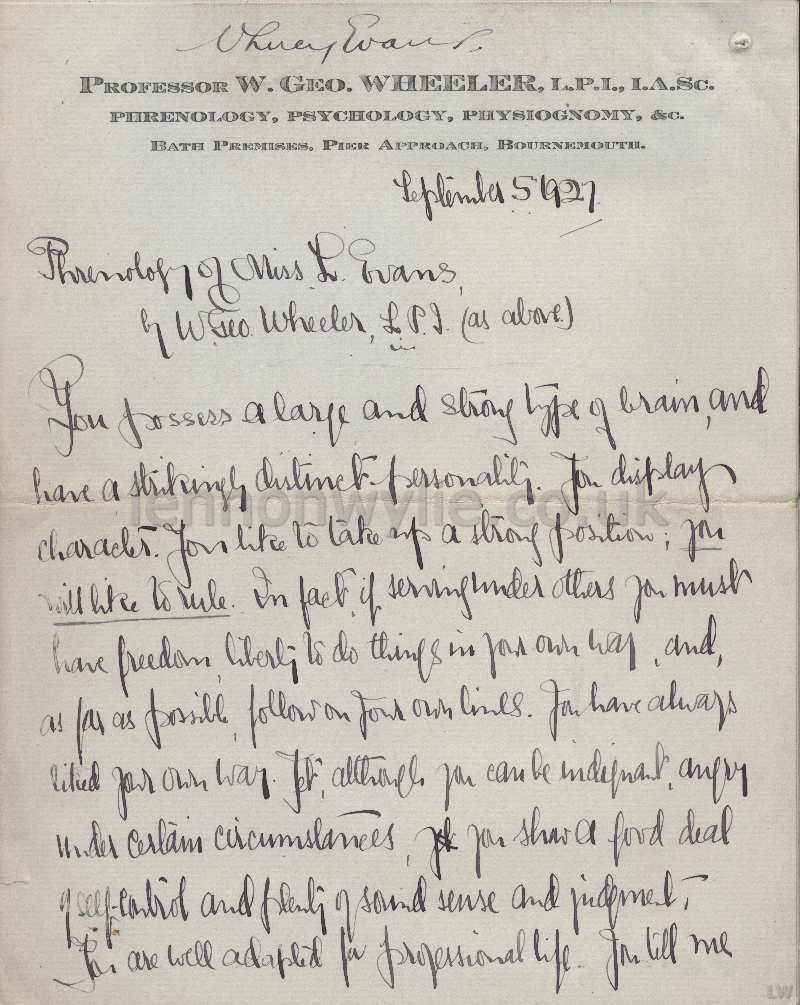 Evans.
PROFESSOR W. GEO. WHEELER, L.P.I., I.A.SC.
PHRENOLOGY, PSYCHOLOGY, PHYSIOGNOMY, &C.
BATH PREMISES, PIER APPROACH, BOURNEMOUTH.
September 5 1927
Phrenology of Miss L. Evans,
by W. Geo. Wheeler, L.P.I. (as above)
You possess a large and strong type of brain, and
have a strikingly distinct personality. You display
lennonwylie.co.uk
character. You like to take up a strong position; you
will like to rule. In fact, if serving under others you must
have freedom, liberty to do things in your own way, and,
as far as possible, follow on your own lines. You have always
liked your own way. Yet, although you can be indignant, angry
under certain circumstances, yet you show a good deal
of self-control and plenty of sound sense and judgment,
You are well adapted for professional life. You tell me
LW